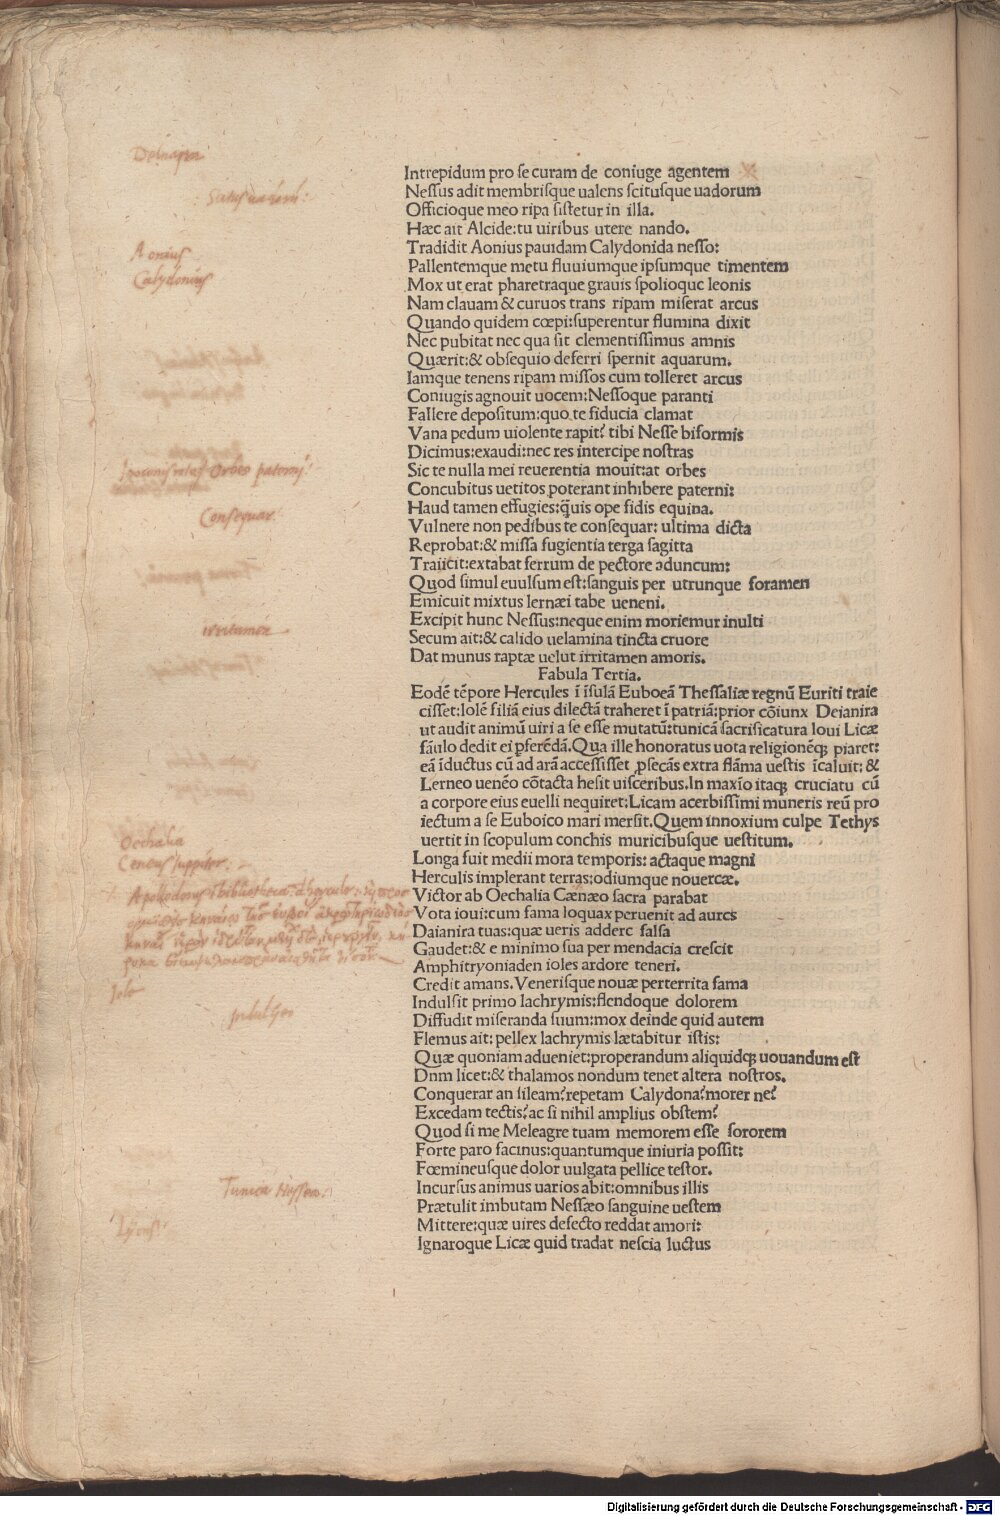 Deianira
Intrepidum pro se curam de coniuge agentem
Nessus adit membrisque ualens scitusque uadorum
Officioque meo ripa sistetur in illa.
Hæc ait Alcide:tu uiribus utere nando.
Aonius
Tradidit Aonius pauidam Calydonida nesso:
Calydonius
Pallentemque metu fluuiumque ipsumque timentem
Mox ut erat pharetraque grauis spolioque leonis
Nam clauam & curuos trans ripam miserat arcus
Quando quidem cœpi:superentur flumina dixit
Nec pubitat nec qua sit clementissimus amnis
Quærit:& obsequio deferri spernit aquarum.
Iamque tenens ripam missos cum tolleret arcus
Coniugis agnouit uocem:Nessoque paranti
Fallere depositum:quo te fiducia clamat
Vana pedum uiolente rapit? tibi Nesse biformis
Dicimus:exaudi:nec res intercipe nostras
Orbes paterni
Sic te nulla mei reuerentia mouit:at orbes
Concubitus uetitos poterant inhibere paterni:
Consequar
Haud tamen effugies:q̃uis ope fidis equina.
Vulnere non pedibus te consequar: ultima dicta
Reprobat:& missa fugientia terga sagitta
Traiicit:extabat ferrum de pectore aduncum:
Quod simul euulsum est:sanguis per utrunque foramen
Emicuit mixtus lernæi tabe ueneni.
irritamen
Excipit hunc Nessus:neque enim moriemur inulti
Secum ait:& calido uelamina tincta cruore
Dat munus raptæ uelut irritamen amoris.
Fabula Tertia.
Eodē tēpore Hercules ī īsulā Euboeā Thessaliæ regnū Euriti traie
cisset:Iolē filiā eius dilectā traheret ī patriā:prior cōiunx Deianira
ut audit animū uiri a se esse mutatū:tunicā sacrificatura Ioui Licæ
fāulo dedit ei ꝑferēdā.Qua ille honoratus uota religionēqꝫ piaret:
eā īductus cū ad arā accessisset ꝓsecās extra flāma uestis īcaluit: &
Lerneo uenēo cōtacta hesit uisceribus.In maxīo itaqꝫ cruciatu cū
a corpore eius euelli nequiret:Licam acerbissimi muneris reū pro
iectum a se Euboico mari mersit.Quem innoxium culpe Tethys
uertit in scopulum conchis muricibusque uestitum.
Oechalia
Ceneus Juppiter
Longa fuit medii mora temporis: actaque magni
Herculis implerant terras:odiumque nouercæ.
Victor ab Oechalia Cænæo sacra parabat
Vota ioui:cum fama loquax peruenit ad aures
Daianira tuas:quæ ueris addere falsa
Gaudet:& e minimo sua per mendacia crescit
Amphitryoniaden ioles ardore teneri.
Iole
Credit amans.Venerisque nouæ perterrita fama
Indulgeo
Indulsit primo lachrymis:flendoque dolorem
Diffudit miseranda suum:mox deinde quid autem
Flemus ait: pellex lachrymis lætabitur istis:
Quæ quoniam adueniet:properandum aliquidqꝫ uouandum est
Dnm licet:& thalamos nondum tenet altera nostros.
Conquerar an sileam?repetam Calydona?morer ne?
Excedam tectis?ac si nihil amplius obstem?
Quod si me Meleagre tuam memorem esse sororem
Forte paro facinus:quantumque iniuria possit:
Fœmineusque dolor uulgata pellice testor.
Tunica Nessea
Incursus animus uarios abit:omnibus illis
Prætulit imbutam Nessæo sanguine uestem
Mittere:quæ uires defecto reddat amori:
Ignaroque Licæ quid tradat nescia luctus
Digitalisierung gefördert durch die Deutsche Forschungsgemeinschaft - DFG